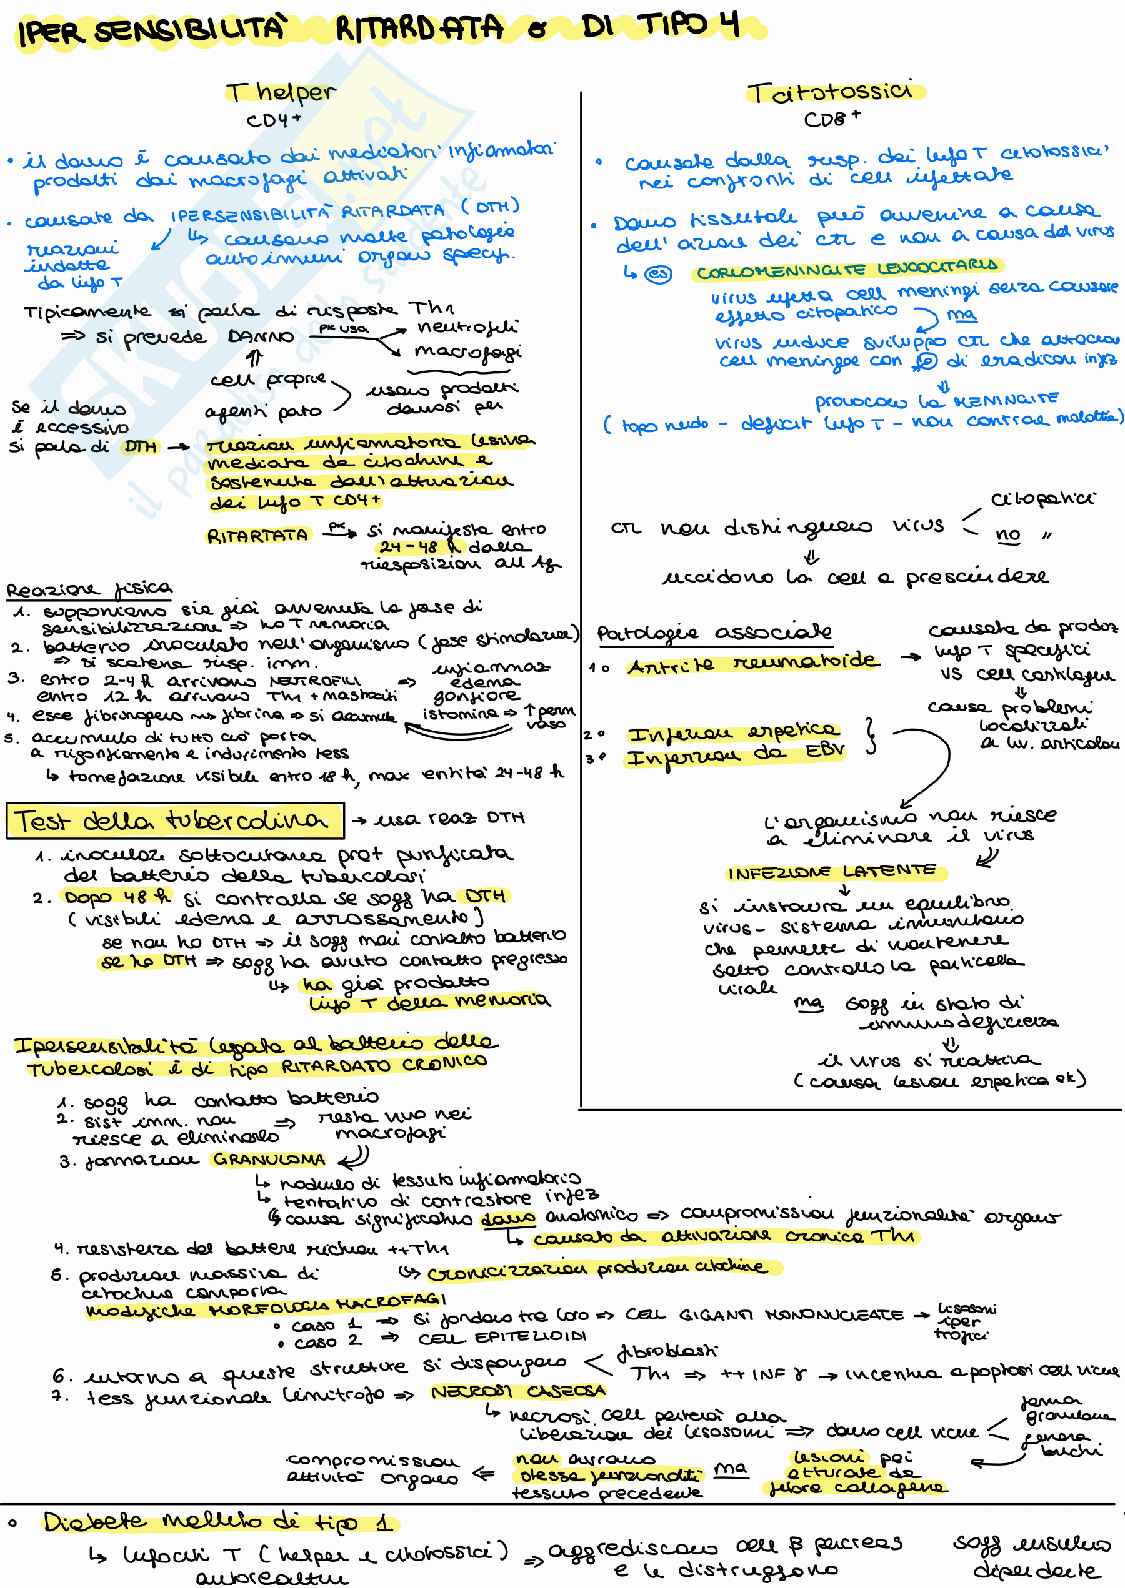 IPERSENSIBILITÀ RITARDATA o DI TIPO 4
T helper
CD4+
• il danno è causato dai mediatori infiammatori
prodotti dai macrofagi attivati
• causate da IPERSENSIBILITÀ RITARDATA (DTH)
reazioni
indotte
da linfo T
↳ causano molte patologie
autoimmuni organo specif.
Tipicamente si parla di risposte Th1
⇒ si prevede DANNO pk usa neutrofili
macrofagi
cell proprie
agenti pato
usano prodotti
dannosi per
Se il danno
è eccessivo
si parla di DTH → reazioni infiammatoria lesiva
mediata da citochine e
sostenuta dall'attivazioni
dei linfo T CD4+
RITARTATA pk si manifesta entro
24-48 h dalla
riesposizioni all'Ag
Reazione fisica
1. supponiamo sia già avvenuta la fase di
sensibilizzazione ⇒ ho T memoria
2. batterio inoculato nell'organismo (fase stimolazione)
⇒ si scatena risp. imm.
3. entro 2-4 h arrivano NEUTROFILI ⇒
entro 12 h arrivano Th1 + mastociti
infiammaz
edema
gonfiore
4. esce fibrinogeno ⇝ fibrina ⇒ si accumula
istamina ⇒ ↑ perm
vaso
5. accumulo di tutto ciò porta
a rigonfiamento e indurimento tess
↳ tomefazione visibile entro 18 h, max entità 24-48 h
Test della tubercolina → usa reaz DTH
1. inoculaz sottocutanea prot purificata
del batterio della tubercolosi
2. Dopo 48 h si controlla se sogg ha DTH
(visibili edema e arrossamento)
se non ho DTH ⇒ il sogg mai contatto batterio
se ho DTH ⇒ sogg ha avuto contatto pregresso
↳ ha già prodotto
linfo T della memoria
Ipersensibilità legata al batterio della
Tubercolosi è di tipo RITARDATO CRONICO
1. sogg ha contatto batterio
2. sist imm. non
riesce a eliminarlo
⇒ resta vivo nei
macrofagi
3. formazioni GRANULOMA
↳ nodulo di tessuto infiammatorio
↳ tentativo di contrastare infez
↳ causa significativo danno anatomico ⇒ compromissioni funzionalità organo
↳ causato da attivazione cronica Th1
4. resistenza del battere richiam ++Th1
↳ cronicizzazioni produzioni citochine
5. produzioni massiva di
citochine comporta
modifiche MORFOLOGIA MACROFAGI
• caso 1 ⇒ si fondono tra loro ⇒ CELL GIGANTI MONONUCLEATE → lisosomi
iper
trofici
• caso 2 ⇒ CELL EPITELIOIDI
6. intorno a queste strutture si dispongono
fibroblasti
Th1 ⇒ ++ INF γ → incentiva apoptosi cell vicine
7. tess funzionale limitrofo ⇒ NECROSI CASEOSA
↳ necrosi cell porterà alla
liberazione dei lisosomi ⇒ danno cell vicine
forma
granulomi
genera
buchi
lesioni poi
otturate da
fibre collagene
ma
non avranno
stesse funzionalità
tessuto precedente
⇐ compromissioni
attività organo
• Diabete mellito di tipo 1
↳ linfociti T (helper e citotossici)
autoreattivi
⇒ aggrediscono cell β pancreas
e le distruggono
sogg insulino
dipendente
T citotossici
CD8+
• causate dalla risp. dei linfo T citotossici
nei confronti di cell infettate
• Danno tissutale può avvenire a causa
dell'azioni dei CTL e non a causa del virus
↳ es CORIOMENINGITE LEUCOCITARIA
virus infetta cell meningi senza causare
effetto citopatico ma
virus induce sviluppo CTL che attaccano
cell meningee con fine di eradicare infez
⇓
provocano la MENINGITE
(topo nudo - deficit linfo T - non contrae malattia)
CTL non distinguono virus
citopatici
no "
⇓
uccidono la cell a prescindere
Patologie associate
1° Artrite reumatoide → causata da produz
linfo T specifici
VS cell cartilagine
⇓
causa problemi
localizzati
a liv. articolari
2° Infezioni erpetica
3° Infezioni da EBV
L'organismo non riesce
a eliminare il virus
INFEZIONE LATENTE
↓
si instaura un equilibrio
virus - sistema immunitario
che permette di mantenere
sotto controllo la particella
virale
ma sogg in stato di
immunodeficienza
⇓
il virus si riattiva
(causa lesioni erpetica ok)
skuola.net
il paradiso dello studente